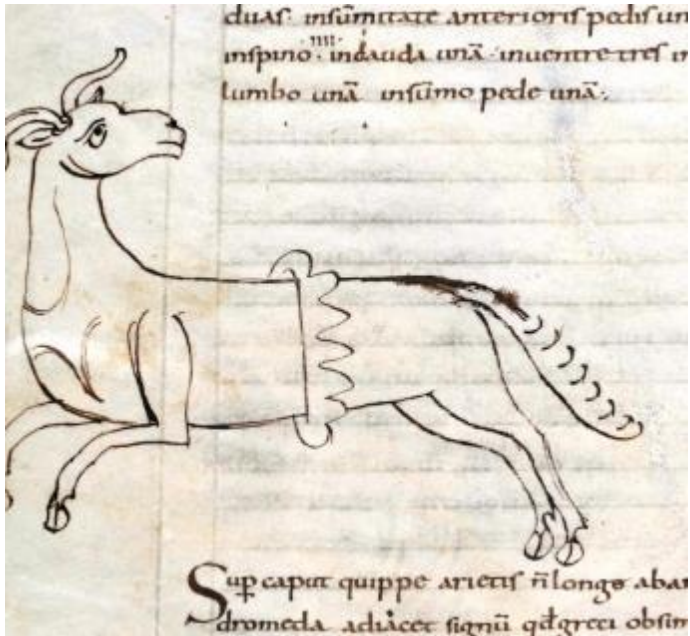 duas· insūmitate anterioris pedis un
inspino ·IIII· incauda unā· inuentre tres in
lumbo unā insūmo pede unā·
Sup̄ caput quippe arietis n̄ longe aban
dromeda adiacet signū qđ greci obsim